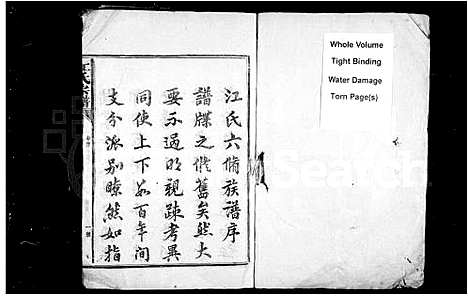 江氏六脩族譜序
譜牒之脩舊矣然大
要不過明親疎考異
同使上下數百年間
支分派別瞭然如指
江氏宗譜
Whole Volume
Tight Binding
Water Damage
Torn Page(s)